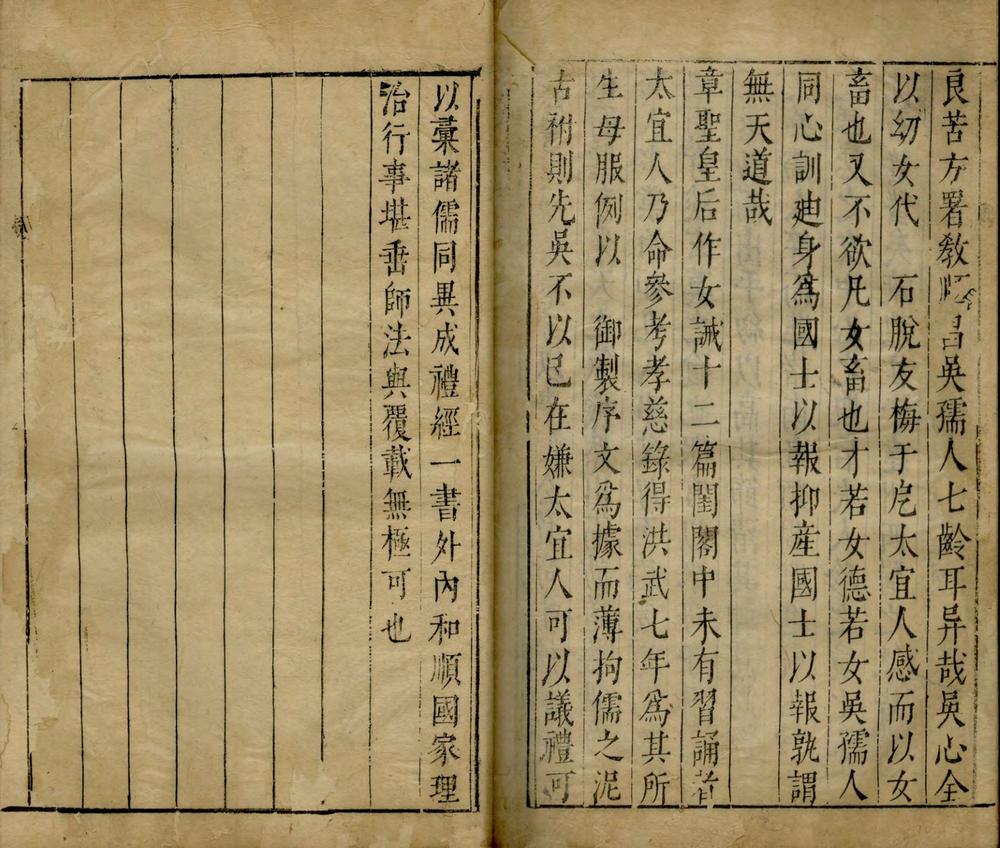 良苦方署教順昌吳孺人七齡耳异哉吳心全
以幼女代　石脫友梅于戹太宜人感而以女
畜也又不欲凡女畜也才若女德若女吳孺人
同心訓廸身爲國士以報抑産國士以報孰謂
無天道哉
章聖皇后作女誡十二篇閨閣中未有習誦者
太宜人乃命參考孝慈錄得洪武七年爲其所
生母服例以　御製序文爲據而薄拘儒之泥
古祔則先吳不以已在嫌太宜人可以議禮可
以彙諸儒同異成禮經一書外內和順國家理
治行事堪垂師法與覆載無極可也